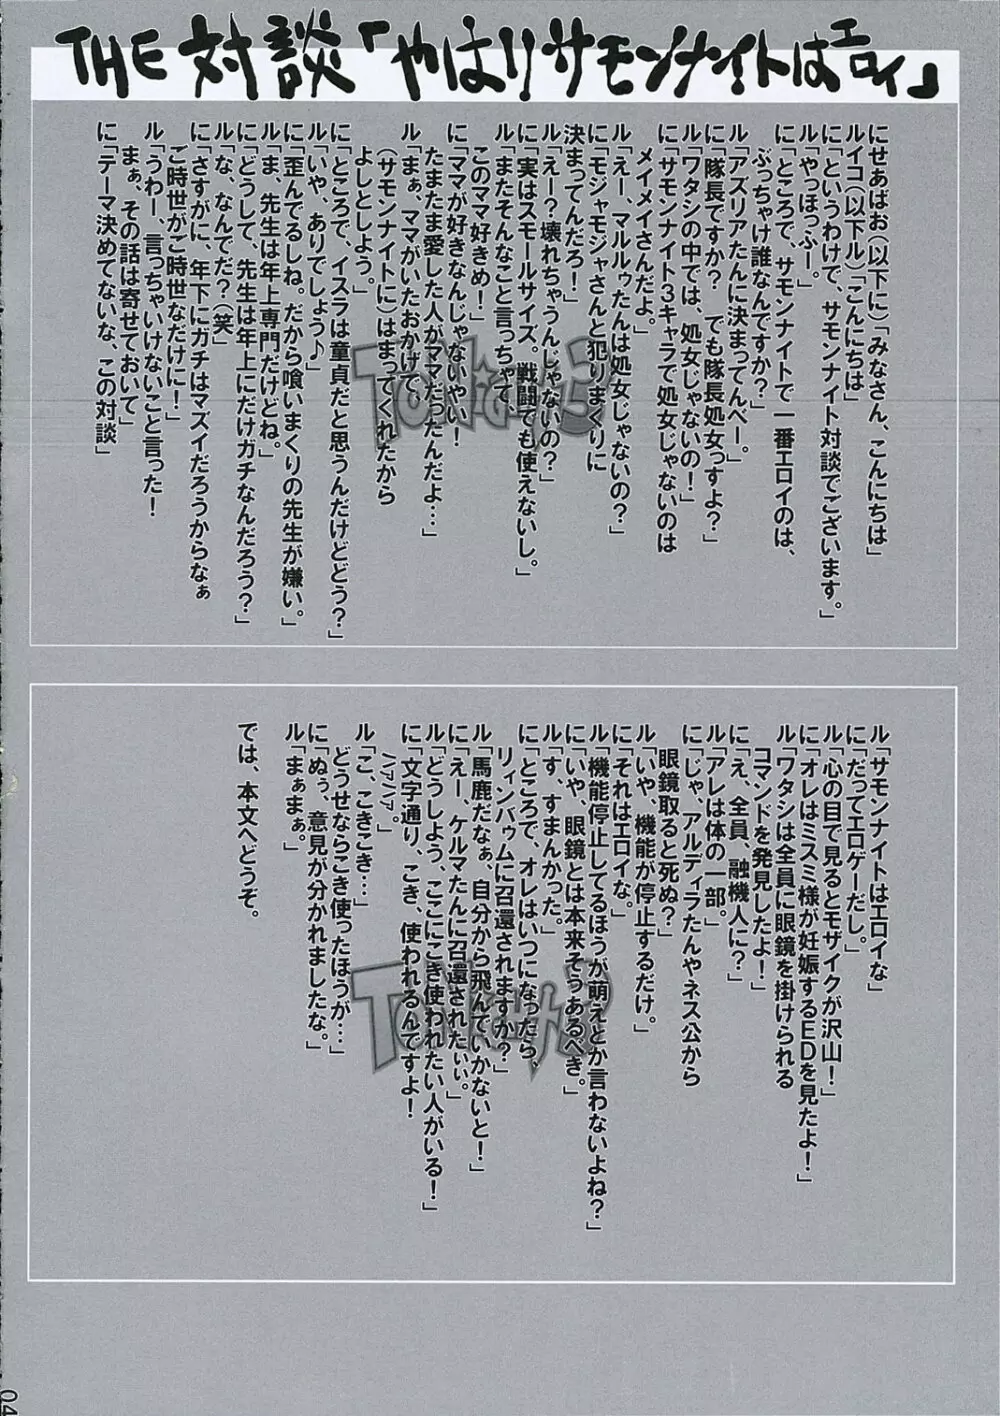 THE 対談「やはりサモンナイトはエロイ」
にせあばお(以下に)「みなさん、こんにちは」
ルイコ(以下ル)「こんにちは」
に「というわけで、サモンナイト対談でございます。」
ル「やっほっふー。」
に「ところで、サモンナイトで一番エロイのは、
ぶっちゃけ誰なんですか？」
ル「アズリアたんに決まってんべー。」
に「隊長ですか？　でも隊長処女っすよ？」
ル「ワタシの中では、処女じゃないの！」
に「サモンナイト3キャラで処女じゃないのは
メイメイさんだよ。」
ル「えー、マルルゥたんは処女じゃないの？」
に「モジャモジャさんと犯りまくりに
決まってんだろ！」
ル「えー？壊れちゃうんじゃないの？」
に「実はスモールサイズ。戦闘でも使えないし。」
ル「またそんなこと言っちゃて、
このママ好きめ！」
に「ママが好きなんじゃないやい！
たまたま愛した人がママだったんだよ…」
ル「まぁ、ママがいたおかげで、
(サモンナイトに)はまってくれたから
よしとしよう。」
に「ところで、イスラは童貞だと思うんだけどどう？」
ル「いや、ありでしょう♪」
に「歪んでるしね。だから喰いまくりの先生が嫌い。」
ル「ま、先生は年上専門だけどね。」
に「どうして、先生は年上にだけガチなんだろう？」
ル「な、なんでだ？(笑)」
に「さすがに、年下にガチはマズイだろうからなぁ
ご時世がご時世なだけに！」
ル「うわー、言っちゃいけないこと言った！
まぁ、その話は寄せておいて」
に「テーマ決めてないな、この対談」
ル「サモンナイトはエロイな」
に「だってエロゲーだし。」
ル「心の目で見るとモザイクが沢山！」
に「オレはミスミ様が妊娠するEDを見たよ！」
ル「ワタシは全員に眼鏡を掛けられる
コマンドを発見したよ！」
に「え、全員、融機人に？」
ル「アレは体の一部。」
に「じゃ、アルディラたんやネス公から
眼鏡取ると死ぬ？」
ル「いや、機能が停止するだけ。」
に「それはエロイな。」
ル「機能停止してるほうが萌えとか言わないよね？」
に「いや、眼鏡とは本来そうあるべき。」
ル「す、すまんかった。」
に「ところで、オレはいつになったら、
リィンバゥムに召還されますか？」
ル「馬鹿だなぁ、自分から飛んでいかないと！」
に「えー、ケルマたんに召還されたぃぃ。」
ル「どうしよう、ここにこき使われたい人がいる！」
に「文字通り、こき、使われるんですよ！
ハァハァ。」
ル「こ、こきこき…」
どうせならこき使ったほうが…」
に「ぬぅ、意見が分かれましたな。」
ル「まぁまぁ。」
では、本文へどうぞ。
04